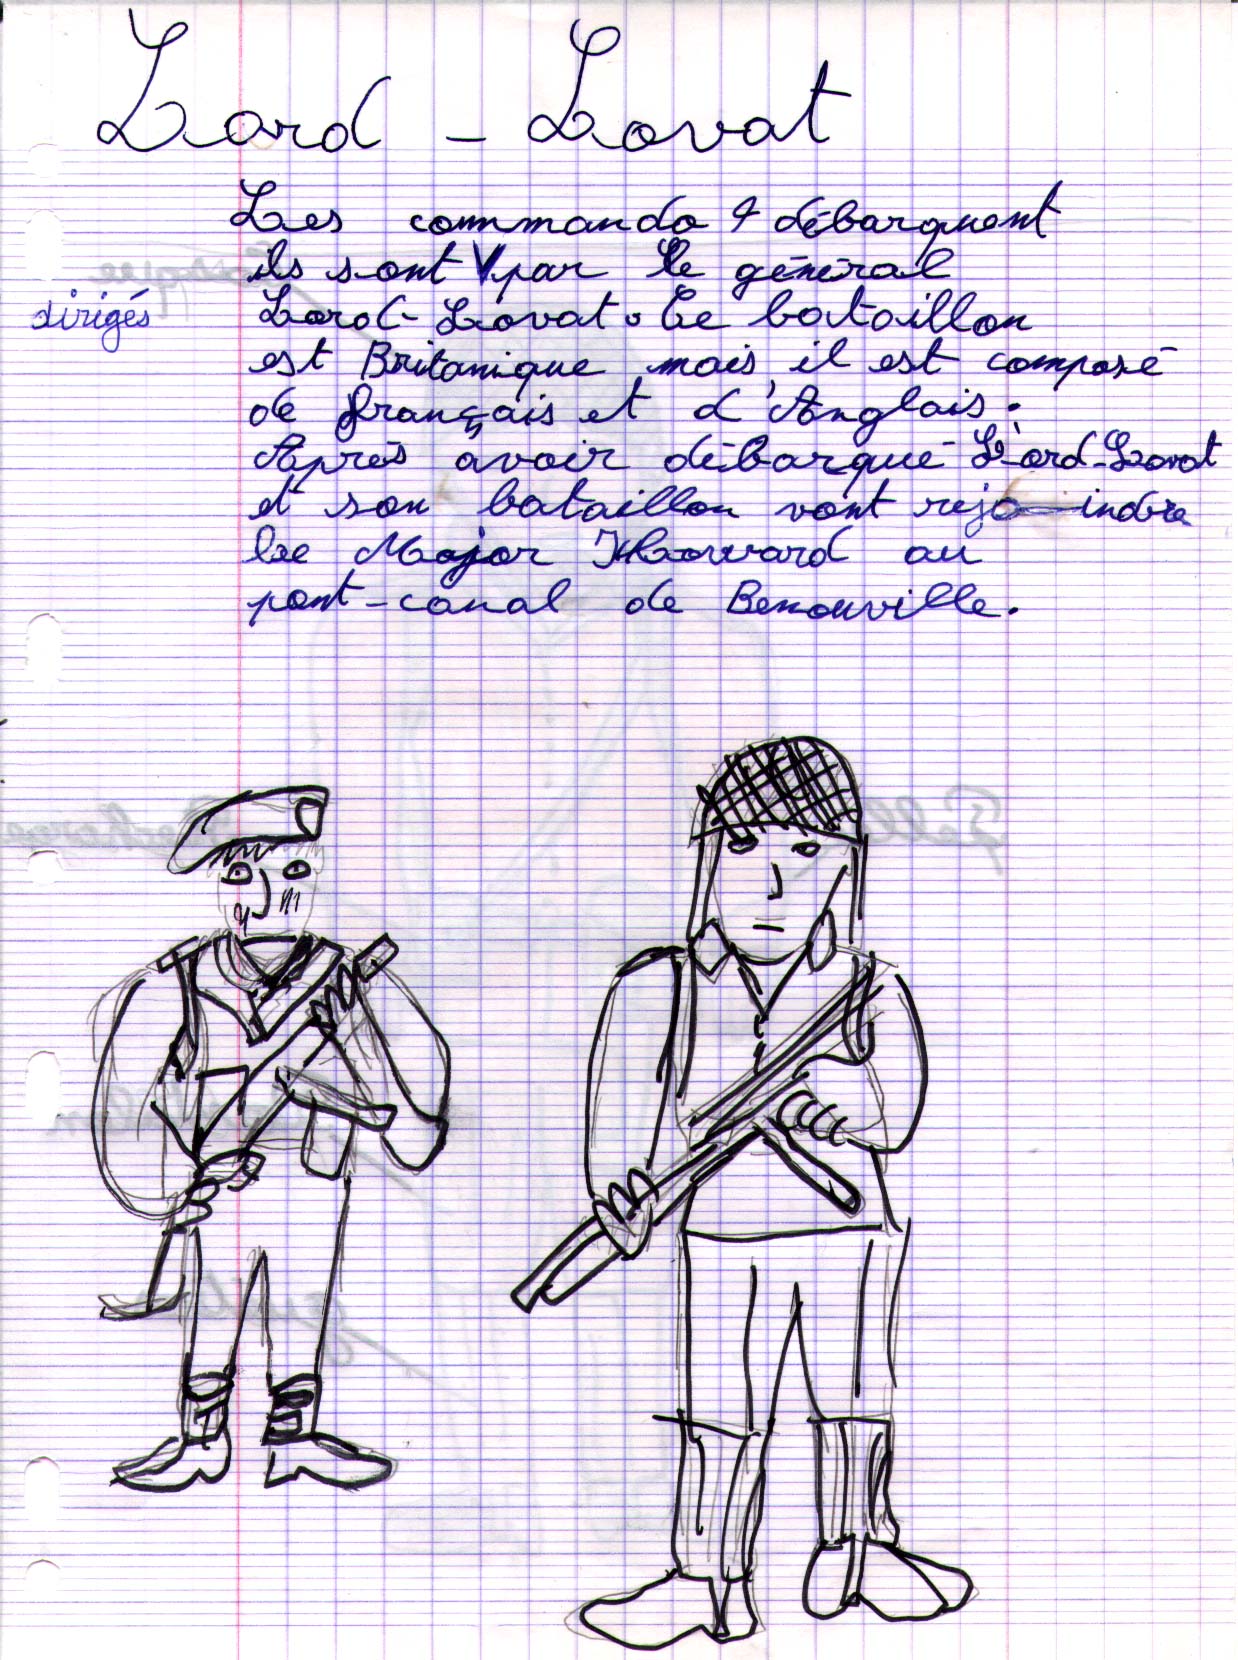 Lord - Lovat
Les commando 4 débarquent
ils sont V par le général
dirigés
Lord-Lovat. Le bataillon
est Britanique mais il est composé
de français et d'Anglais.
Après avoir débarqué Lord-Lovat
et son bataillon vont rejoindre
le Major Howard au
pont-canal de Benouville.